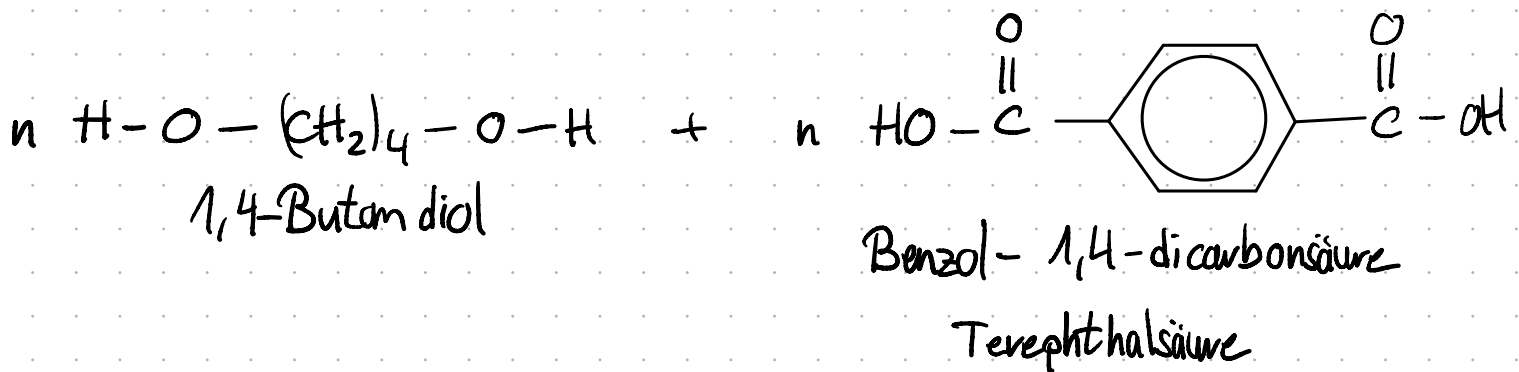 O O
|| ||
n H-O-(CH₂)₄-O-H + n HO-C- -C-OH
1,4-Butandiol
Benzol-1,4-dicarbonsäure
Terephthalsäure